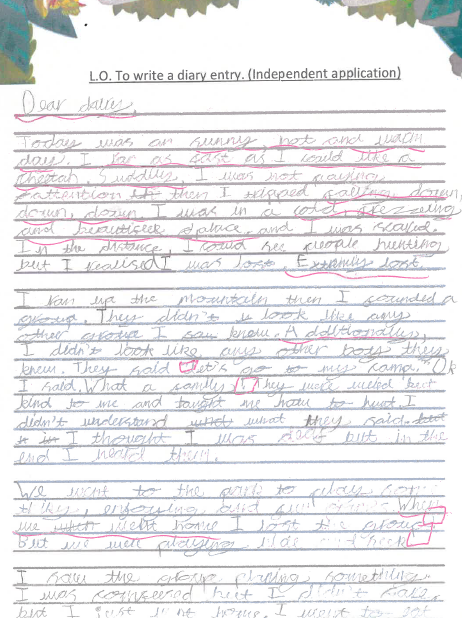 L.O. To write a diary entry. (Independent application)
Dear dairy,
Today was an sunny, hot and warm
day. I ran as fast as I could like a
cheetah. Suddlly, I was not paying
attention then I tripped falling down,
down, down. I was in a cold,
and place and I was scared.
In the distance, I could see people hunting
but I realised I was lost. Extremly lost.
I ran up the mountain then I sounded a
group. They didn't look like any
other group I know. Additionally,
I didn't look like any other boys they
knew. They said let's go to my camp. "Ok
I said. What a They were weird but
kind to me and taught me how to hunt. I
didn't understand what they said.
I thought I was deaf but in the
end I heard them.
We went to the park to play
enjoying and When
we went home I lost the group
but we were playing hide and seek
I saw the group playing something.
I was but I didn't care.
but I just home. I went to